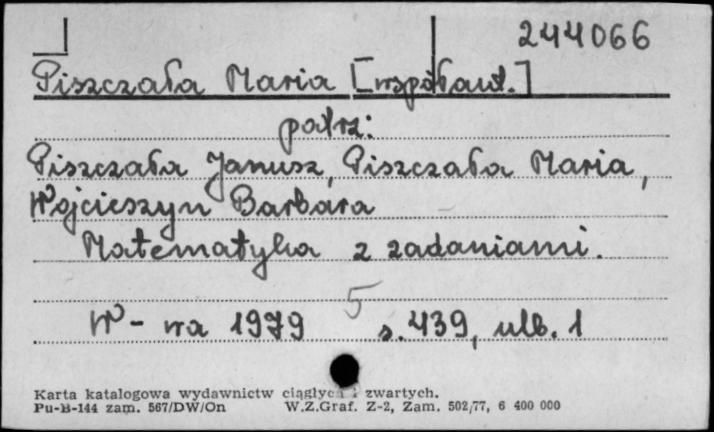 244066
Piszczała Maria [współaut.]
patrz:
Piszczała Janusz, Piszczała Maria,
Wojcieszyn Barbara
Matematyka z zadaniami.
5
W-wa 1979 s. 439, ulb. 1
Karta katalogowa wydawnictw ciągłych i zwartych.
Pu-B-144 zam. 567/DW/On W.Z.Graf. Z-2, Zam. 502/77, 6 400 000